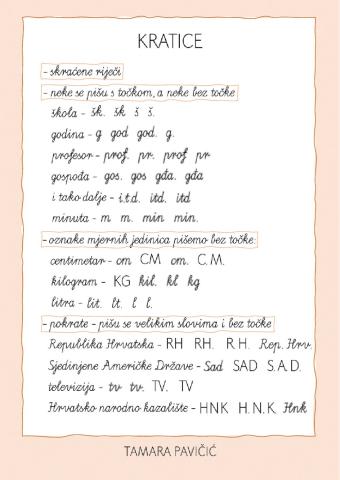 KRATICE
- skraćene riječi
- neke se pišu s točkom, a neke bez točke
škola - šk. šk š š.
godina - g god god. g.
profesor - prof. pr. prof pr
gospođa - gos. gos gđa. gđa
i tako dalje - i.t.d. itd. itd
minuta - m m. min min.
- oznake mjernih jedinica pišemo bez točke:
centimetar - cm CM cm. C.M.
kilogram - KG kil. kl kg
litra - lit. lt. l l.
- pokrate - pišu se velikim slovima i bez točke
Republika Hrvatska - RH RH. R.H. Rep. Hrv.
Sjedinjene Američke Države - Sad SAD S.A.D.
televizija - tv tv. TV. TV
Hrvatsko narodno kazalište - HNK H.N.K. Hnk
TAMARA PAVIČIĆ